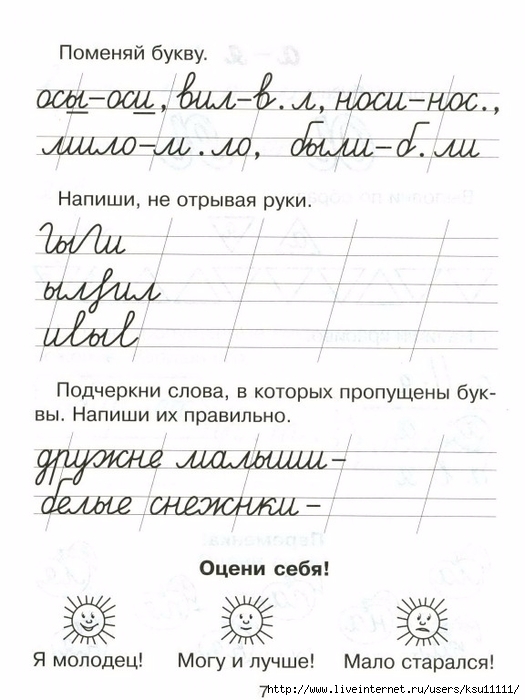 Поменяй букву.
осы–оси, вил–в.л, носи–нос.,
мило–м.ло, были–б.ли
Напиши, не отрывая руки.
гыГи
ивыв
Подчеркни слова, в которых пропущены бук-
вы. Напиши их правильно.
дружне малыши –
белые снежнки –
Оцени себя!
Я молодец! Могу и лучше! Мало старался!
7
http://www.liveinternet.ru/users/ksu11111/